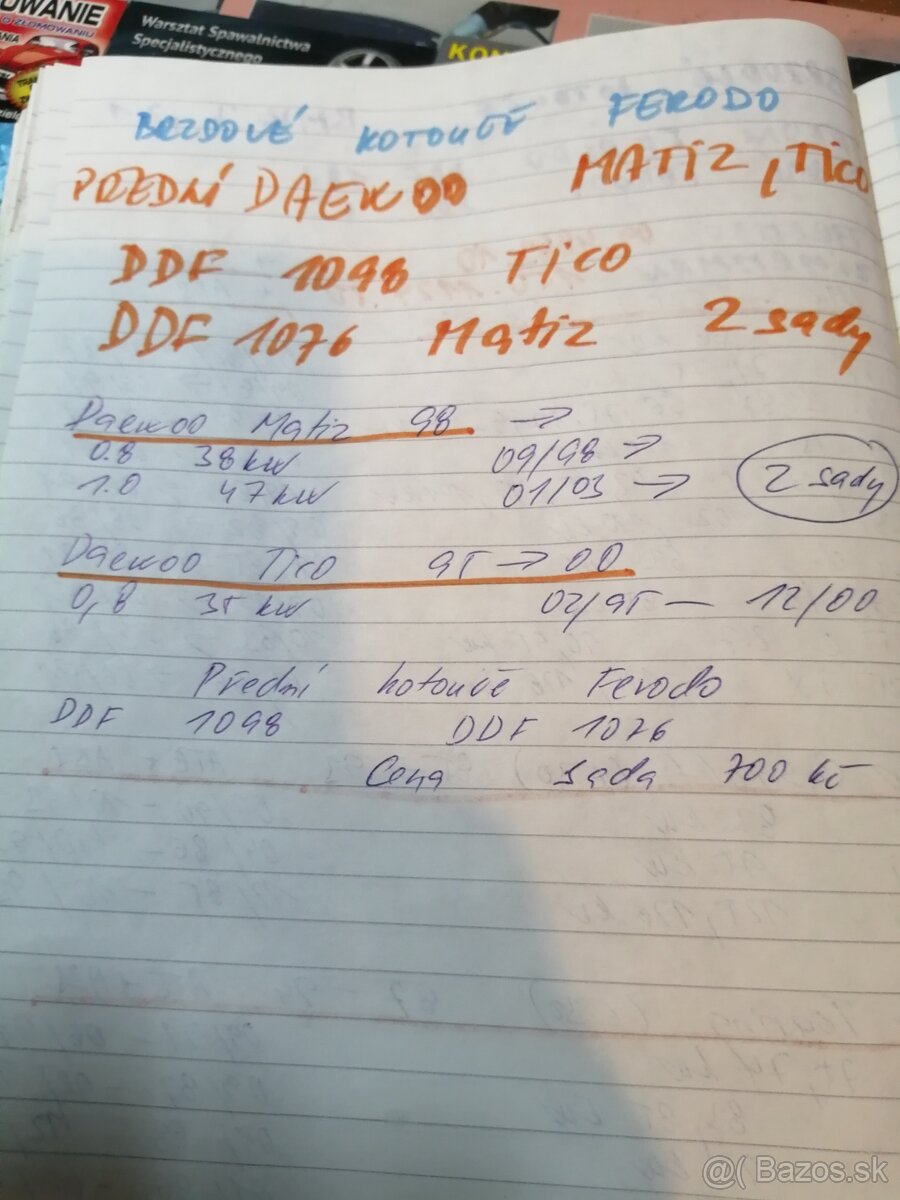 OWANIE
O ZŁOMOWANIU
Warsztat Spawalnictwa
Specjalistycznego
KON
BRZDOVÉ KOTOUČE FERODO
PŘEDNÍ DAEWOO MATIZ, TICO
DDF 1098 TICO
DDF 1076 Matiz 2 sady
Daewoo Matiz 98 →
0.8 38 kw 09/98 →
1.0 47 kw 01/03 → 2 sady
Daewoo Tico 95 → 00
0,8 35 kw 02/95 — 12/00
Přední kotouče Ferodo
DDF 1098 DDF 1076
Cena sada 700 kč
@( Bazos.sk